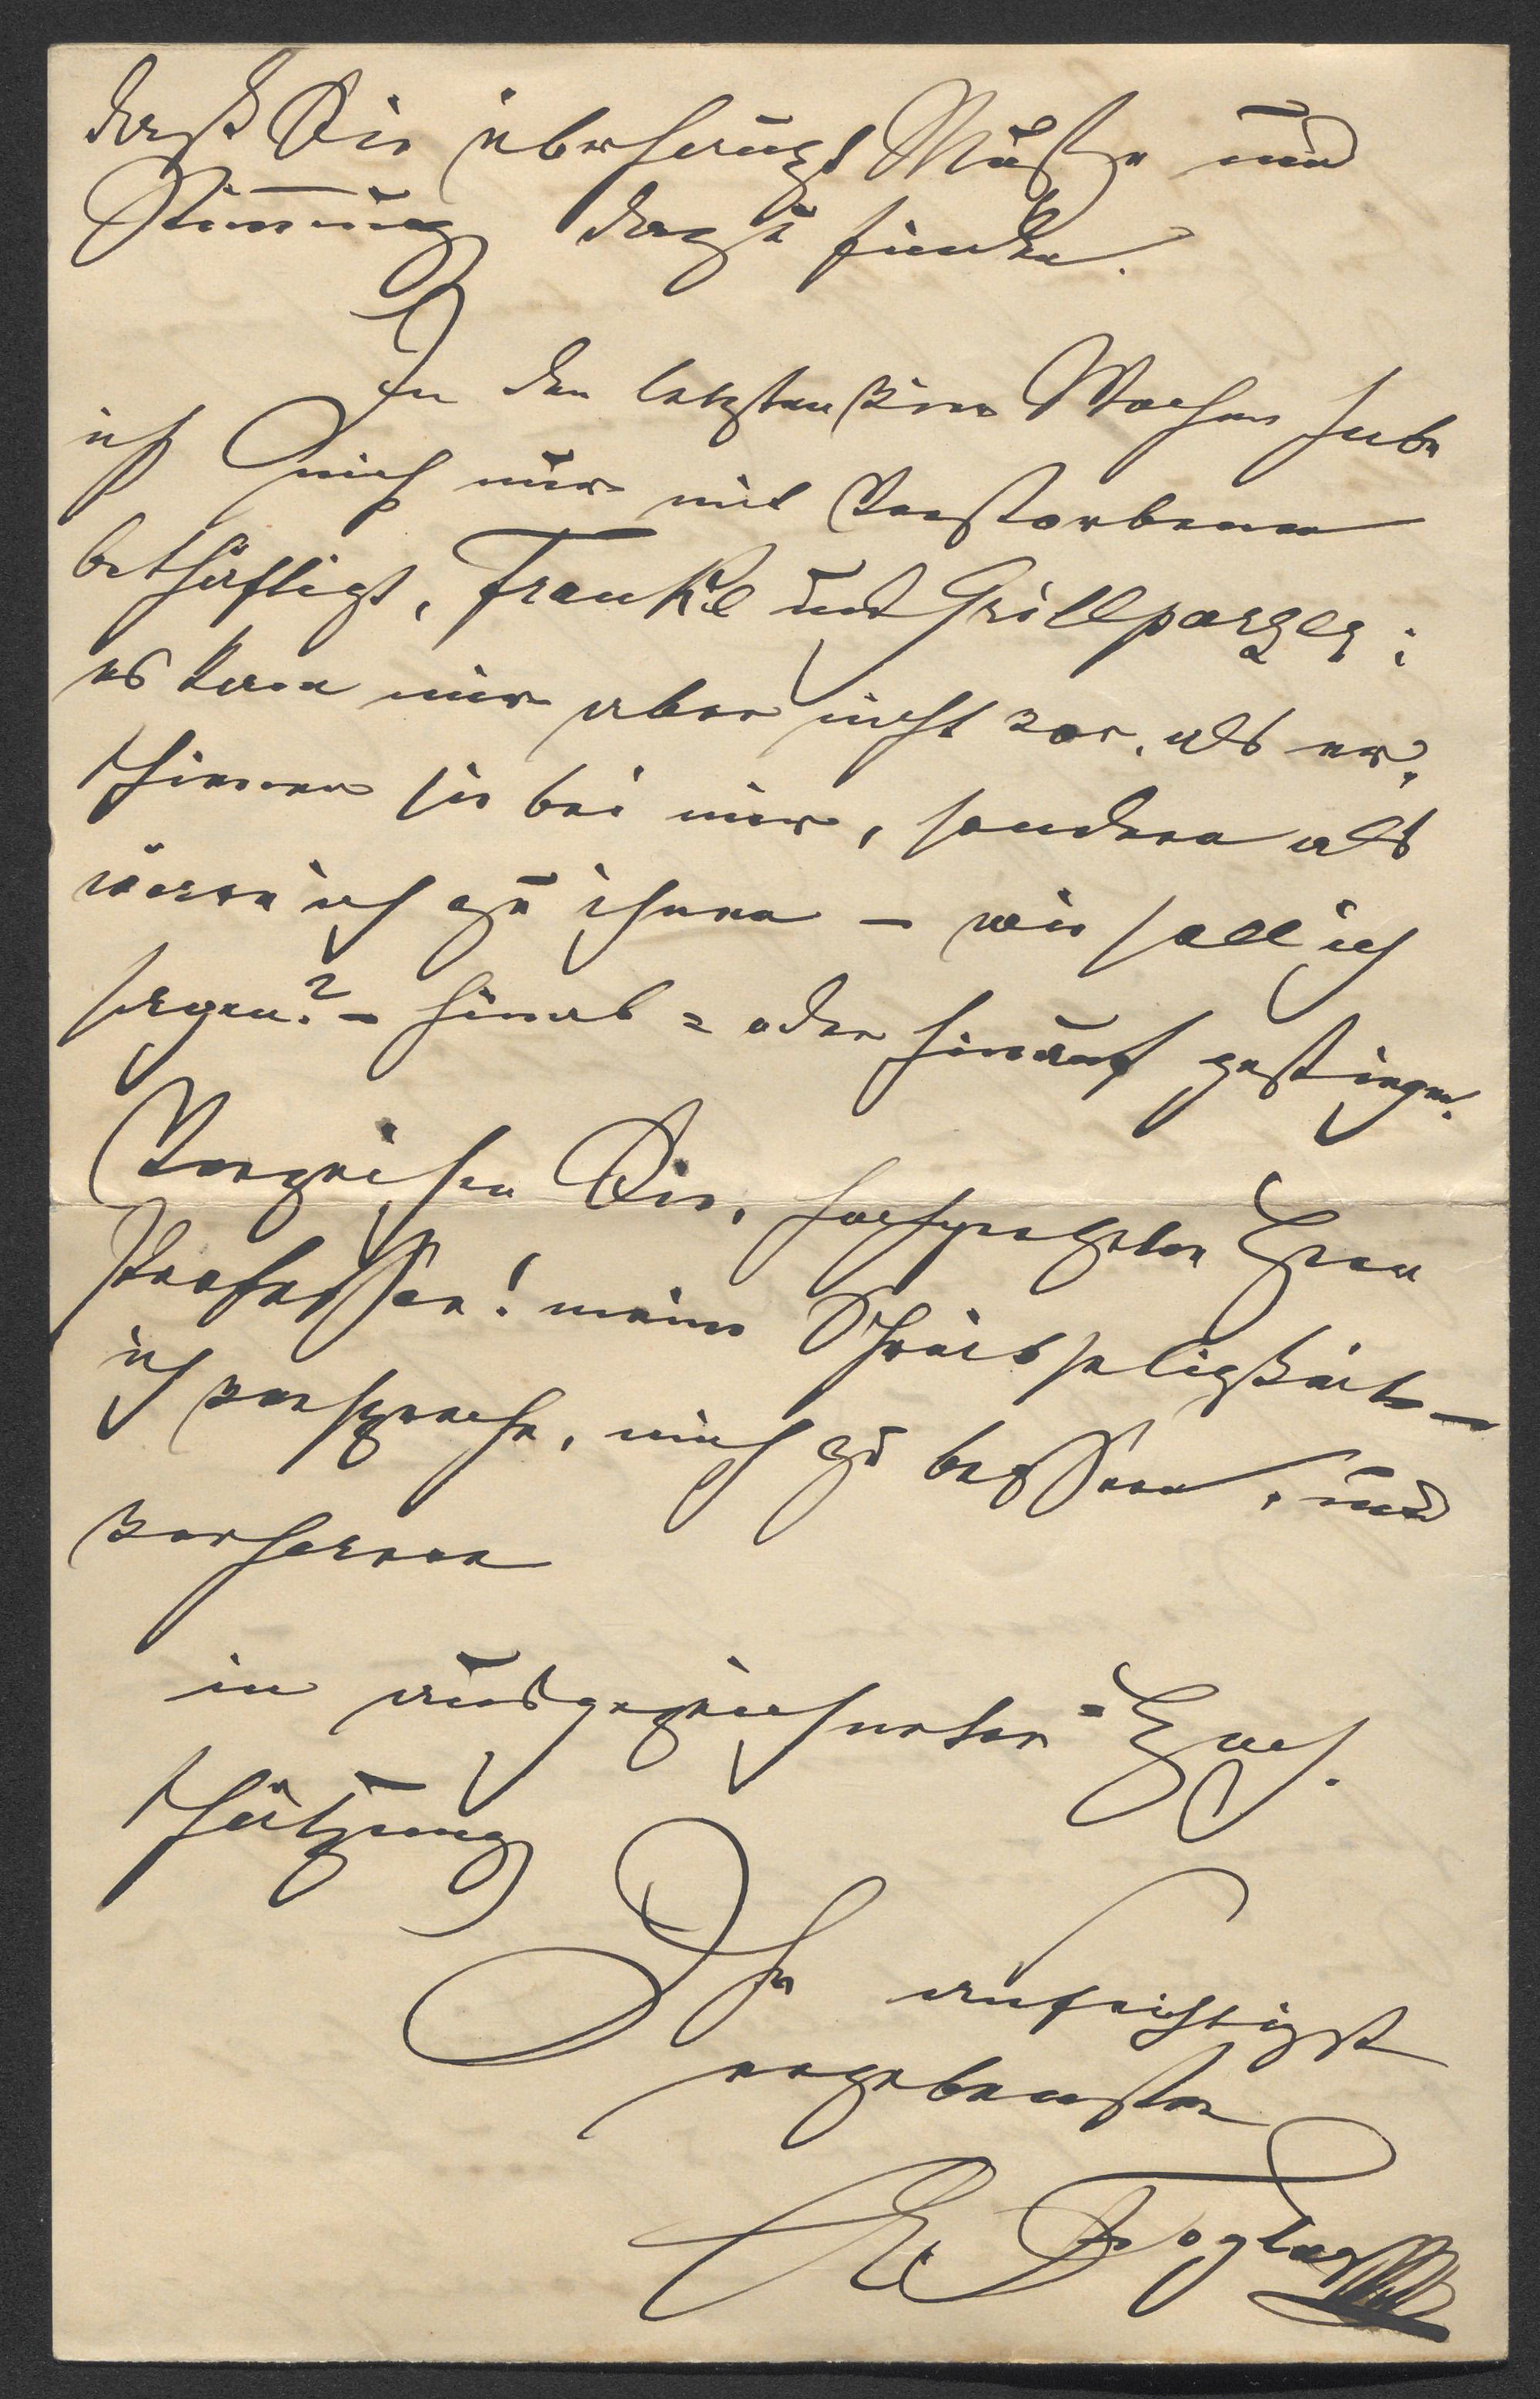 daß Sie überhaupt Muße und
Stimmung dazu finden.
In den letzten vier Wochen habe
ich mich nur mit Verstorbenen
beschäftigt, Frankl und Grillparzer;
es kam mir aber nicht vor, als er-
schienen sie bei mir, sondern als
wäre ich zu ihnen – wie soll ich
sagen? – hinab- oder hinauf gestiegen.
Verzeihen Sie, hochgeehrter Herr
Professor! meine Schreibseligkeit –
ich verspreche, mich zu bessern, und
verharre
in ausgezeichneter Hoch-
schätzung
Ihr aufrichtigst
ergebenster
L. Foglar